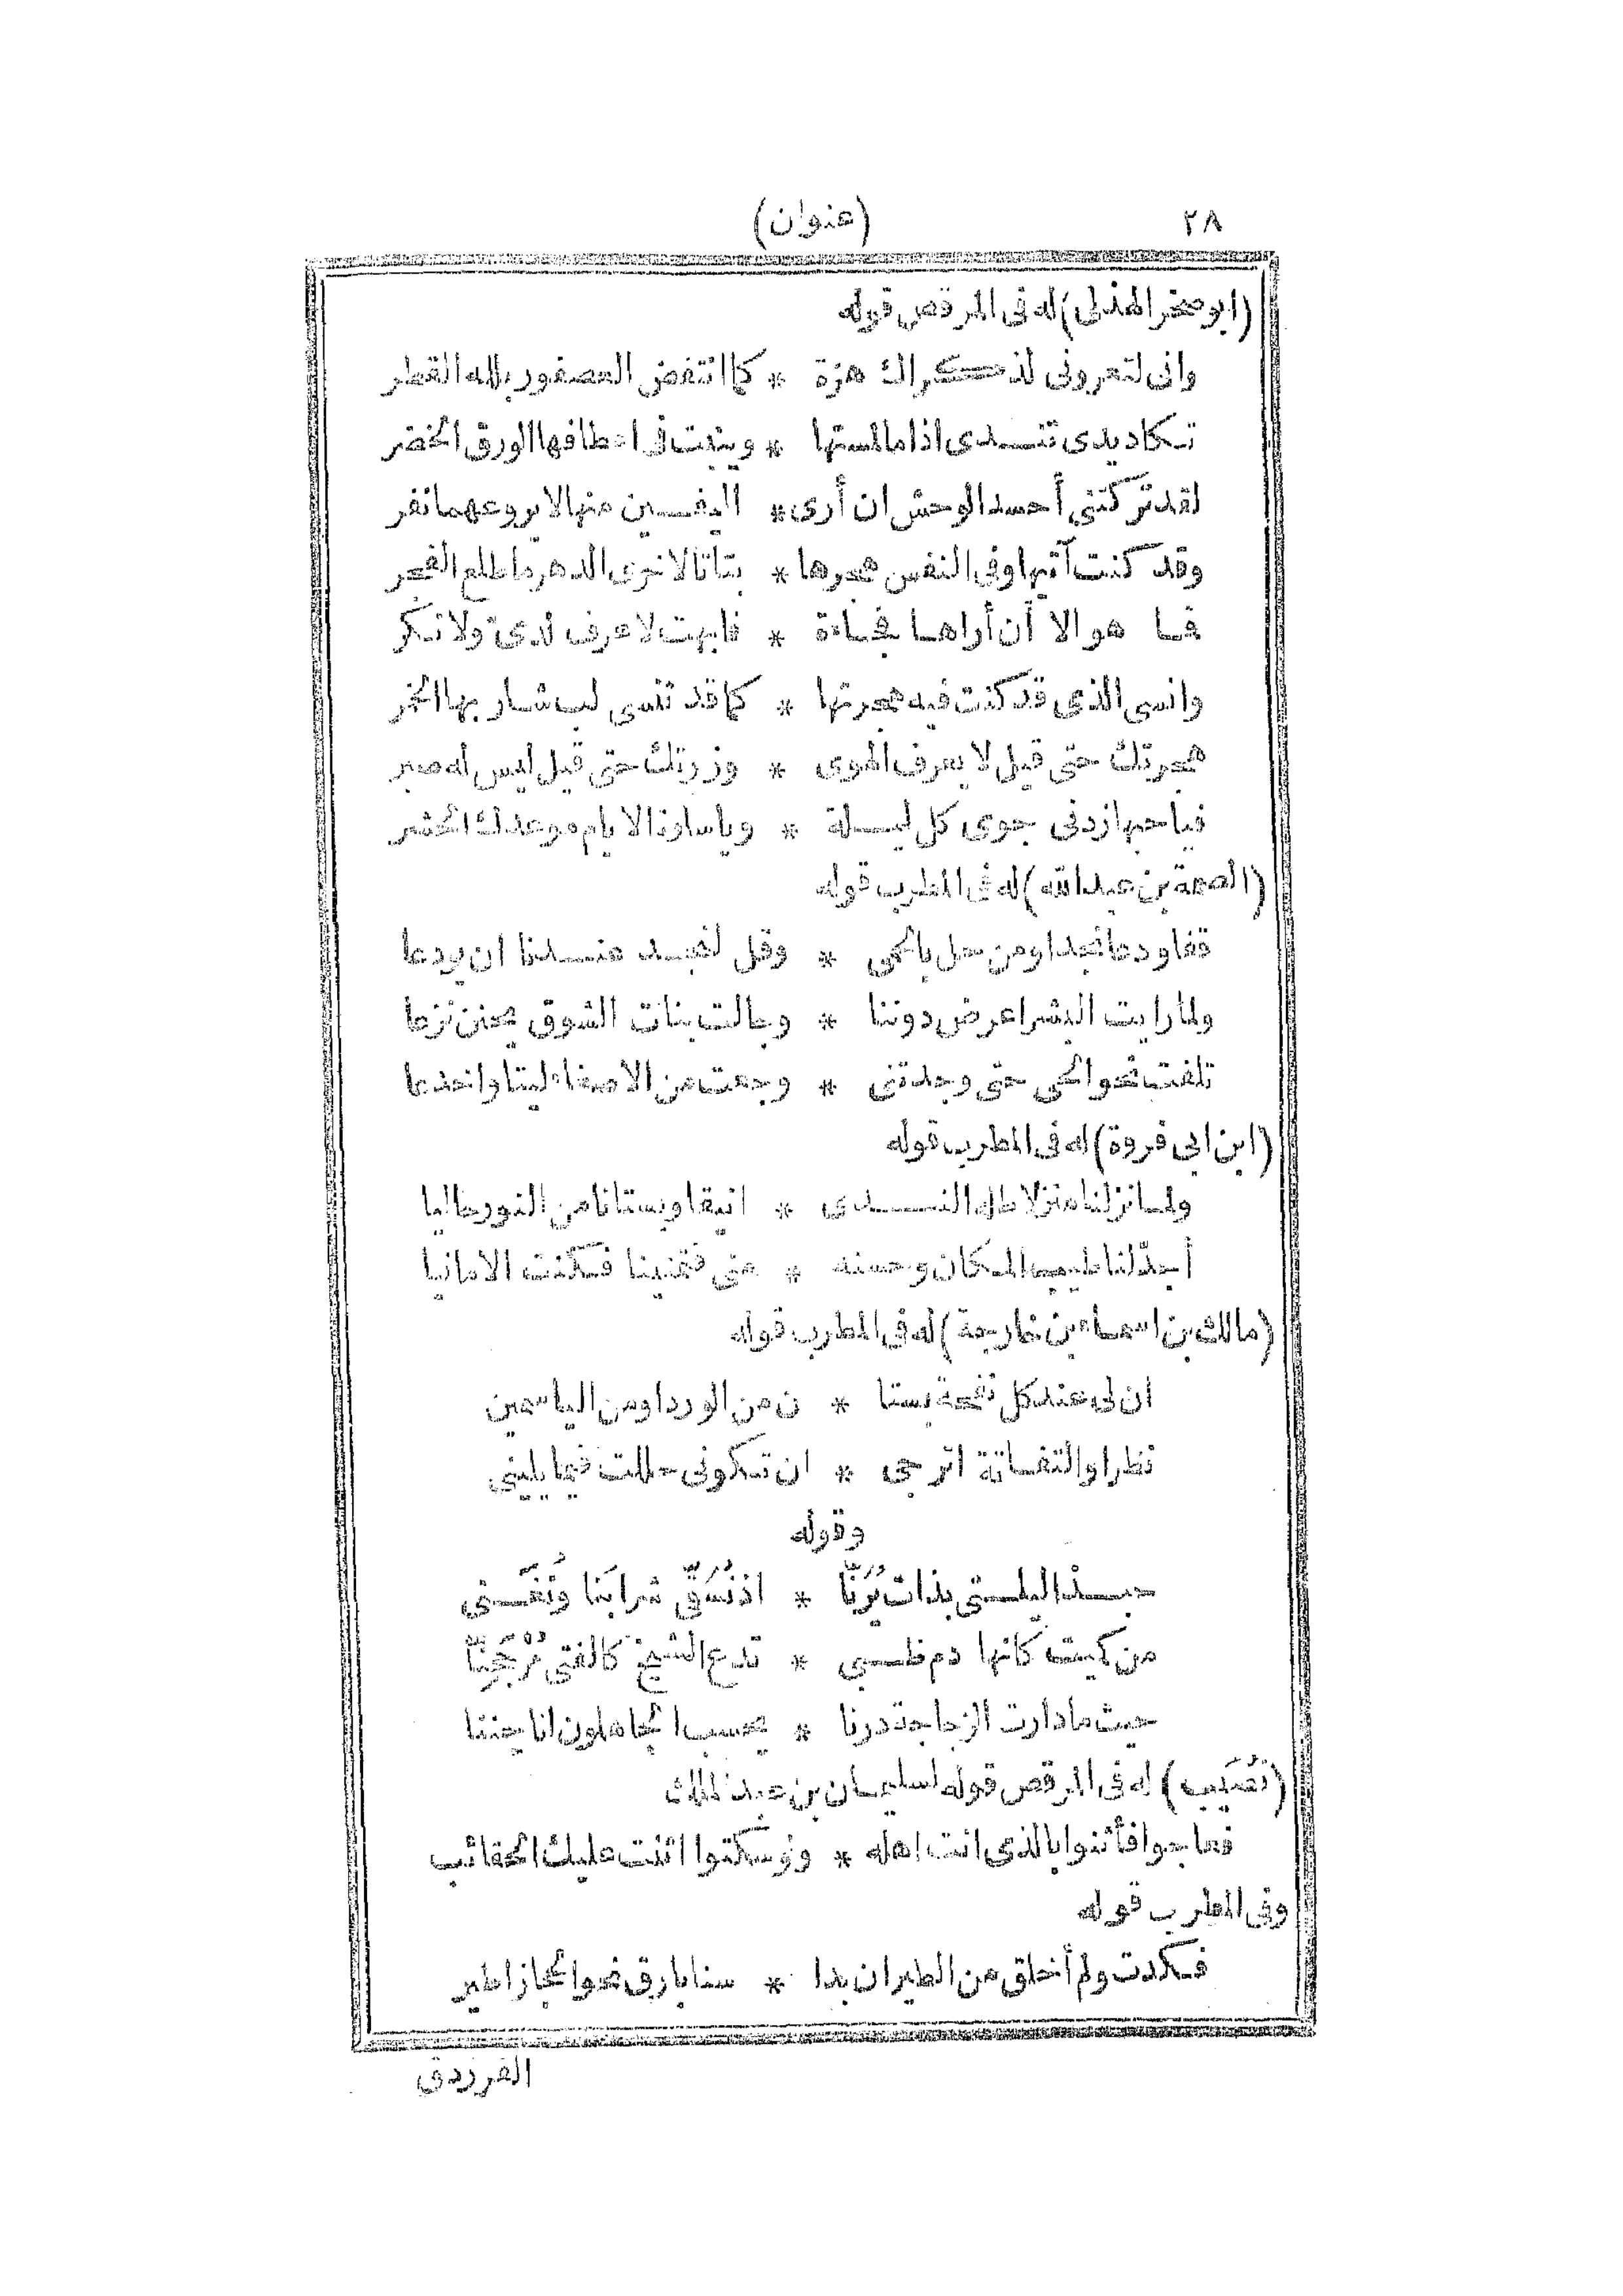 ٢٨ (عنوان)
(ابو صخر الهذلى) له فى المرقص قوله
وانى لتعرونى لذكراك هزة * كما انتفض العصفور بلله القطر
تكاد يدى تندى اذا ما لمستها * وينبت فى اطرافها الورق الخضر
لقد تركتنى أحسد الوحش ان أرى * اليفين منها لا يروعهما نفر
وقد كنت آتيها وفى النفس هجرها * بتاتا لاخرى الدهر ما طلع الفجر
فما هو الا أن أراها فجاءة * فابهت لا عرف لدىّ ولا نكر
وانسى الذى قد كنت فيه هجرتها * كما قد تنسى لب شاربها الخمر
هجرتك حتى قيل لا يعرف الهوى * وزرتك حتى قيل ليس له صبر
فيا حبها زدنى جوى كل ليلة * ويا سلوة الايام موعدك الحشر
(الصمة بن عبد الله) له فى المطرب قوله
قفا ودعا نجدا ومن حل بالحمى * وقل لنجد عندنا ان يودعا
ولما رايت البشر اعرض دوننا * وجالت بنات الشوق يحنن نزعا
تلفت نحو الحى حتى وجدتنى * وجعت من الاصغاء ليتا واخدعا
(ابن ابى فروة) له فى المطرب قوله
ولما نزلنا منزلا طله الندى * انيقا وبستانا من النور حاليا
أجدّ لنا طيب المكان وحسنه * منى فتمنينا فكنت الامانيا
(مالك بن اسماء بن خارجة) له فى المطرب قوله
ان لى عند كل نفحة بستا * ن من الورد او من الياسمين
نظرا والتفاتة اترجى * ان تكونى حللت فيما يلينى
وقوله
حبذا ليلتى بذات يُرَنّا * اذ نُسَقَّى شرابَنا ونُغَنَّى
من كميت كانها دم ظبى * تدع الشيخ كالفتى مُرْجَحِنَّا
حيث ما دارت الزجاجة درنا * يحسب الجاهلون انا جننا
(نُصَيب) له فى المرقص قوله لسليمان بن عبد الملك
فعاجوا فأثنوا بالذى انت اهله * ولو سكتوا اثنت عليك الحقائب
وفى المطرب قوله
فكدت ولم أخلق من الطير ان بدا * سنا بارق نحو الحجاز اطير
الفرزدق